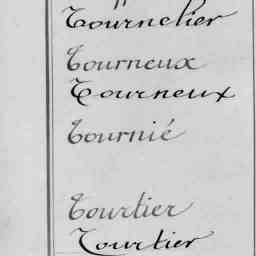 Tournelier
Tourneux
Tourneux
Tournié
Tourtier
Tourtier